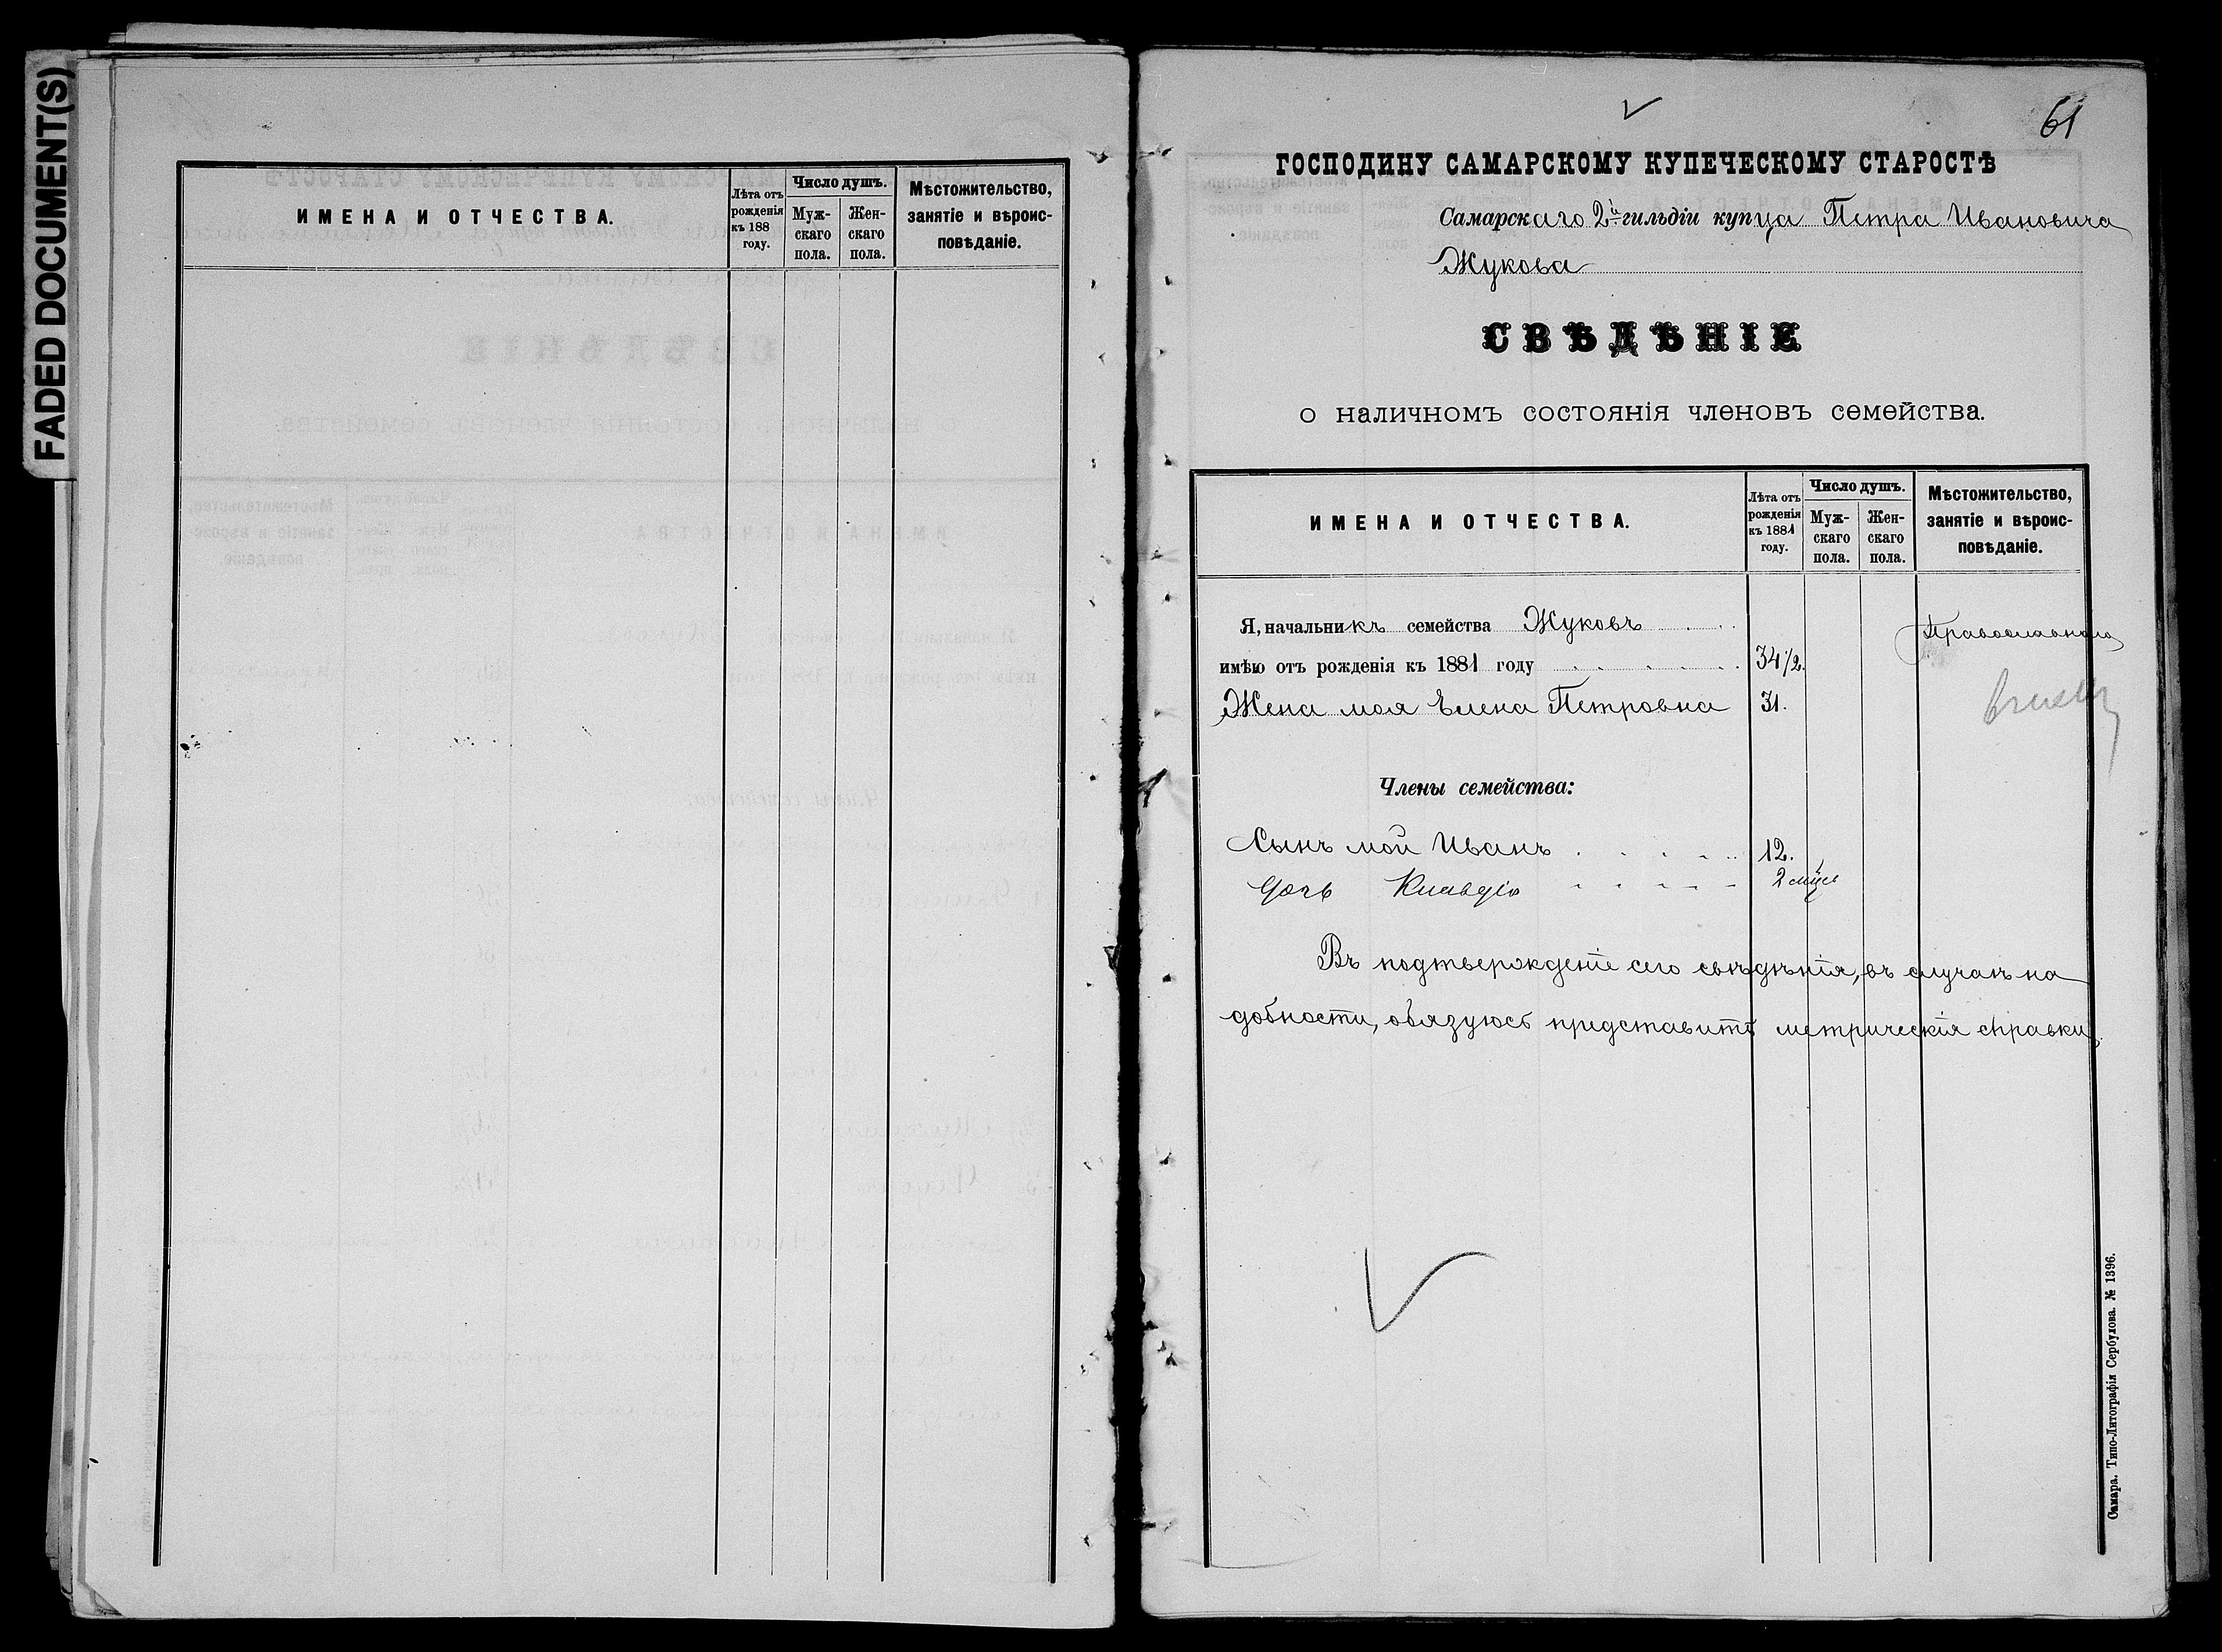 FADED DOCUMENT(S)
ИМЕНА И ОТЧЕСТВА.
Лѣта отъ рожденія къ 188 году.
Число душъ.
Муж-скаго пола.
Жен-скаго пола.
Мѣстожительство, занятіе и вѣроис-повѣданіе.
61
ГОСПОДИНУ САМАРСКОМУ КУПЕЧЕСКОМУ СТАРОСТѢ
Самарскаго 2й гильдіи купца Петра Ивановича
Жукова
СВѢДѢНІЕ
о наличномъ состоянія членовъ семейства.
ИМЕНА И ОТЧЕСТВА.
Лѣта отъ рожденія къ 1881 году.
Число душъ.
Муж-скаго пола.
Жен-скаго пола.
Мѣстожительство, занятіе и вѣроис-повѣданіе.
Я, начальникъ семейства Жуковъ
Православнаго
имѣю отъ рожденія къ 1881 году 34 1/2.
Жена моя Елена Петровна 31.
Члены семейства:
Сынъ мой Иванъ 12.
Дочь Клавдія 2
Въ подтвержденіе сего свѣдѣнія, въ случаѣ на
добности, обязуюсь представить метрическія справки.
Самара. Типо-Литографія Сербулова. № 1396.